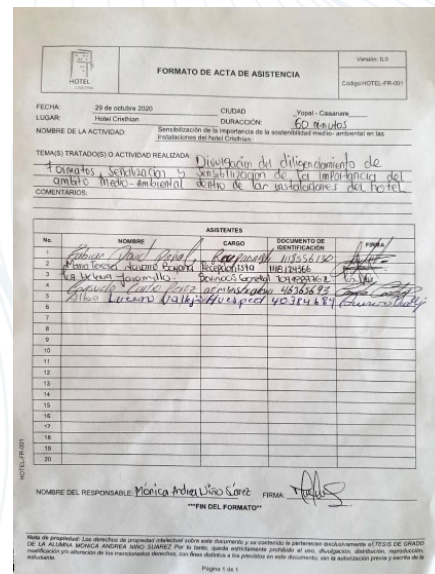 HOTEL
FORMATO DE ACTA DE ASISTENCIA
Versión: 0.0
Código:HOTEL-FR-001
FECHA: 29 de octubre 2020 CIUDAD _Yopal - Casanare_
LUGAR: Hotel Cristhian DURACIÓN: 60 minutos
NOMBRE DE LA ACTIVIDAD Sensibilización de la importancia de la sostenibilidad medio- ambiental en las
instalaciones del hotel Cristhian
TEMA(S) TRATADO(S) O ACTIVIDAD REALIZADA: Divulgación del diligenciamiento de
formatos, Señalización y sensibilización de la importancia del
ambito Medio-ambiental dentro de las instalaciones del hotel
COMENTARIOS:
ASISTENTES
No. NOMBRE CARGO DOCUMENTO DE IDENTIFICACIÓN FIRMA
1 David Recepcionista
2 Maria Teresa Navarro Recepcionista
3 Jaramillo Servicios
4 Consuelo
5 Alba Lucero Vallejo Huesped 40384684
6
7
8
9
10
11
12
13
14
15
16
17
18
19
20
HOTEL-FR-001
NOMBRE DEL RESPONSABLE: Mónica Andrea Niño Súarez FIRMA:
***FIN DEL FORMATO**
Nota de propiedad: Los derechos de propiedad intelectual sobre este documento y su contenido le pertenecen exclusivamente al TESIS DE GRADO
DE LA ALUMNA MONICA ANDREA NIÑO SUAREZ Por lo tanto, queda estrictamente prohibido el uso, divulgación, distribución, reproducción,
modificación y/o alteración de los mencionados derechos, con fines distintos a los previstos en este documento, sin la autorización previa y escrita de la
estudiante.
Página 1 de 1